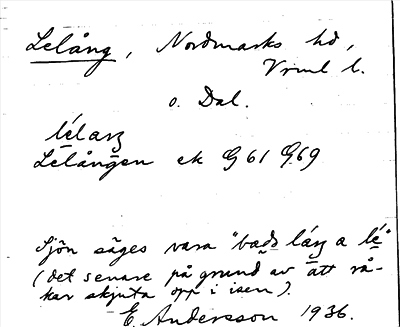 Lelång, Nordmarks hd,
Vrml l.
o. Dal.
lélaŋ
Lelången ek G61 G69
Sjön säges vara "bads láŋ a lé"
(det senare på grund av att rå-
kar skjuta opp i isen).
E. Andersson 1936.